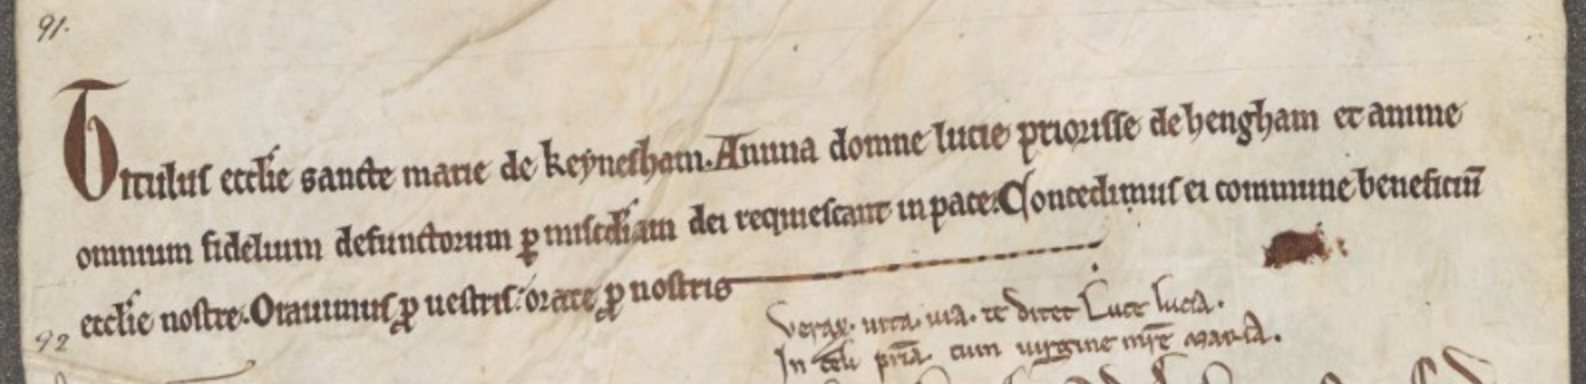 91.
Titulus eccl̃ie sancte marie de keynesham. Anima domne lucie priorisse de hengham et anime
omnium fidelium defunctorum ꝑ misc̃diam dei requiescant in pace. Concedimus ei commune beneficiū
eccl̃ie nostre. Orauimus ꝓ uestris: orate ꝓ nostris
92
uita. uia. te ditet Luce lucia.
In celi pr̄ia. cum uirgine mr̄e maria.